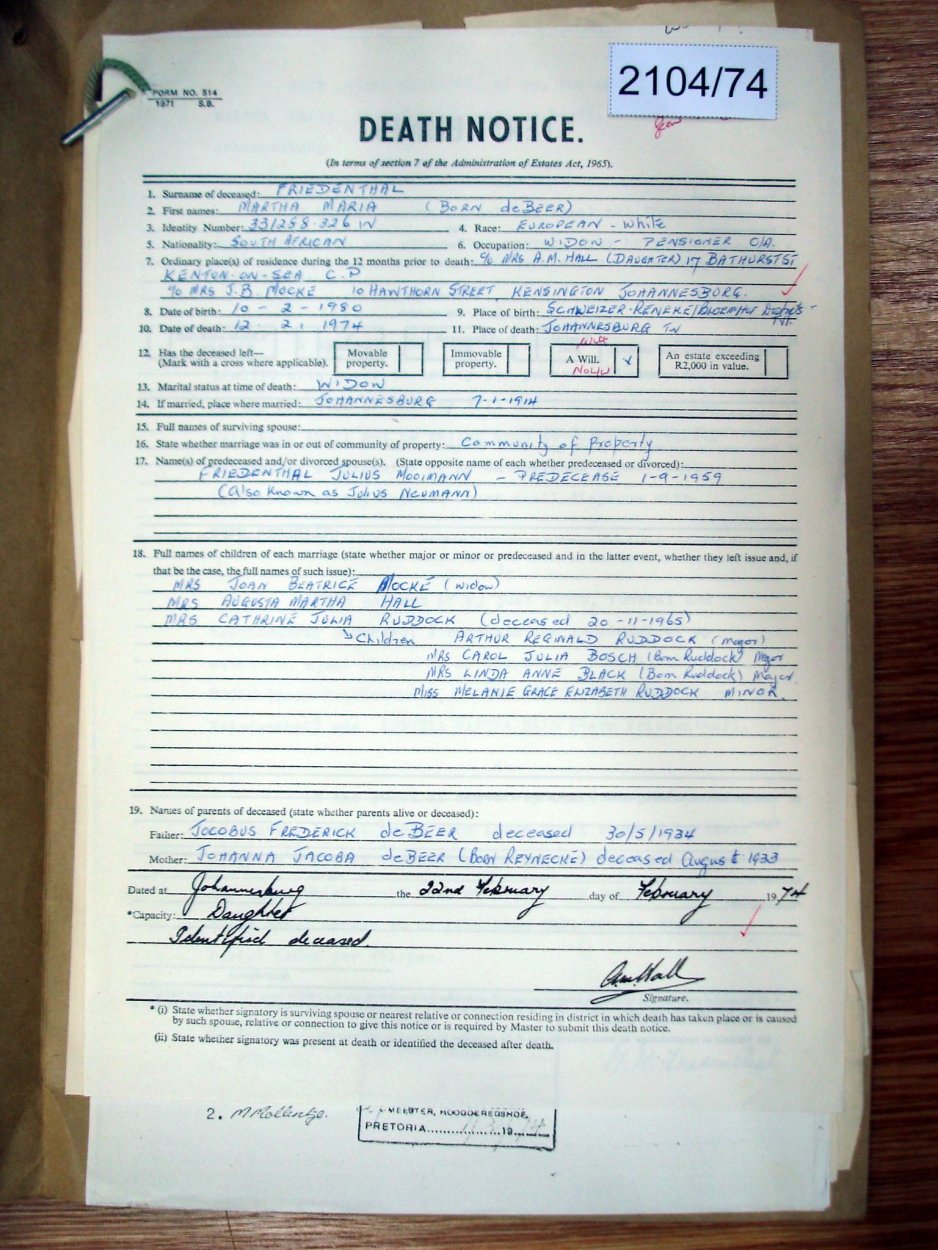 2104/74
FORM NO. 514
1971 S.B.
DEATH NOTICE.
(In terms of section 7 of the Administration of Estates Act, 1965).
1. Surname of deceased: FRIEDENTHAL
2. First names: MARTHA MARIA (BORN deBEER)
3. Identity Number: 331258-326 IN 4. Race: EUROPEAN - White
5. Nationality: SOUTH AFRICAN 6. Occupation: WIDOW - PENSIONER O/A.
7. Ordinary place(s) of residence during the 12 months prior to death: c/o MRS A.M. HALL (DAUGHTER) 17 BATHURST ST
KENTON-ON-SEA C.P
c/o MRS J.B. MOCKE 10 HAWTHORN STREET, KENSINGTON JOHANNESBURG.
8. Date of birth: 10 - 2 - 1980 9. Place of birth: SCHWEIZER-RENEKE/BLOEMHOF
10. Date of death: 12. 2. 1974 11. Place of death: JOHANNESBURG TVL
12. Has the deceased left—
(Mark with a cross where applicable).
Movable property.
Immovable property.
A Will. x
An estate exceeding R2,000 in value.
13. Marital status at time of death: WIDOW
14. If married, place where married: JOHANNESBURG 7-1-1914
15. Full names of surviving spouse:
16. State whether marriage was in or out of community of property: Community of Property
17. Name(s) of predeceased and/or divorced spouse(s). (State opposite name of each whether predeceased or divorced):
FRIEDENTHAL JULIUS MOOIMANN - PREDECEASE 1-9-1959
(also known as Julius NEUMANN)
18. Full names of children of each marriage (state whether major or minor or predeceased and in the latter event, whether they left issue and, if
that be the case, the full names of such issue):
MRS JOAN BEATRICE MOCKÉ (widow)
MRS AUGUSTA MARTHA HALL
MRS CATHRINE JULIA RUDDOCK (deceased 20-11-1965)
Children ARTHUR REGINALD RUDDOCK (major)
MRS CAROL JULIA BOSCH (Born Ruddock) Major
MRS LINDA ANNE BLACK (Born Ruddock) Major
MISS MELANIE GRACE ELIZABETH RUDDOCK MINOR.
19. Names of parents of deceased (state whether parents alive or deceased):
Father: JOCOBUS FREDERICK deBEER deceased 30/5/1934
Mother: JOHANNA JACOBA deBEER (BORN REYNECKE) deceased August 1933
Dated at Johannesburg the 22nd February day of February 1974
*Capacity: Daughter
Identified deceased.
A.M. Hall
Signature.
* (i) State whether signatory is surviving spouse or nearest relative or connection residing in district in which death has taken place or is caused
by such spouse, relative or connection to give this notice or is required by Master to submit this death notice.
(ii) State whether signatory was present at death or identified the deceased after death.
2.
MEESTER, HOOGGEREGSHOF,
PRETORIA..............19......